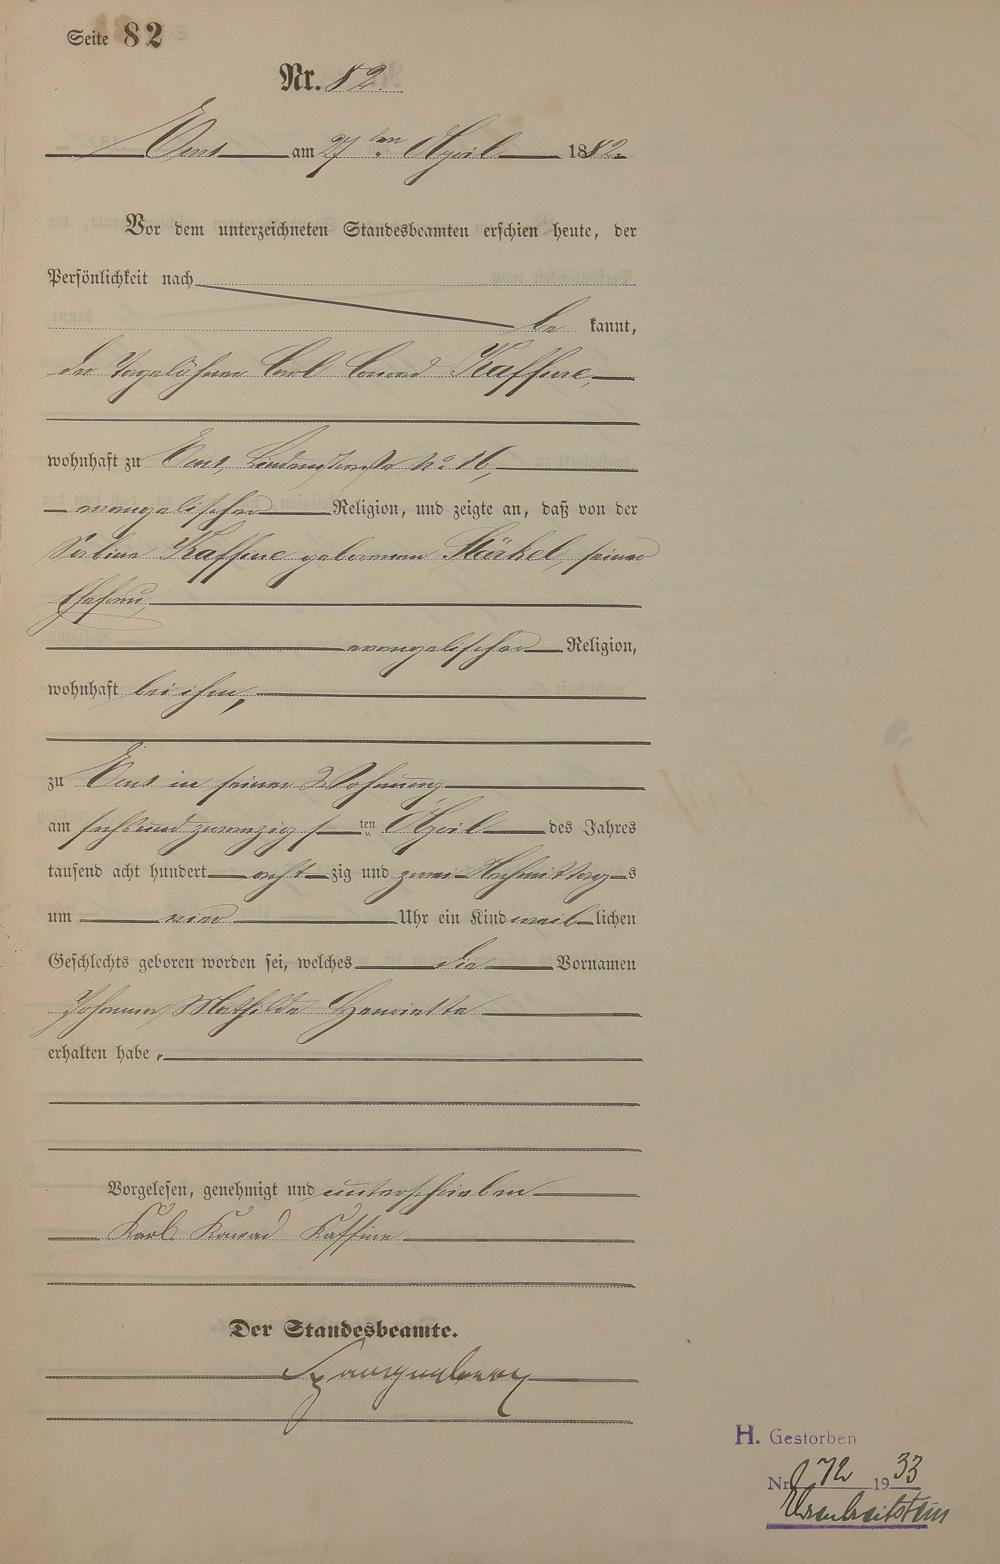 Seite 82
Nr. 82.
Ems am 27ten April 1882.
Vor dem unterzeichneten Standesbeamten erschien heute, der
Persönlichkeit nach
be kannt,
der Tagelöhner Carl Conrad Kaffine,
wohnhaft zu Ems, Lindenstraße No 16,
evangelischer Religion, und zeigte an, daß von der
Sabine Kaffine geborenen Stärkel, seiner
Ehefrau,
evangelischer Religion,
wohnhaft bei ihm,
zu Ems in seiner Wohnung
am sechsundzwanzigsten April des Jahres
tausend acht hundert acht zig und zwei Nachmittags
um vier Uhr ein Kind weib lichen
Geschlechts geboren worden sei, welches die Vornamen
Johanna Mathilde Henriette
erhalten habe.
Vorgelesen, genehmigt und unterschrieben
Karl Konrad Kaffine
Der Standesbeamte.
H. Gestorben
Nr. 72 1933
Ehrenbreitstein